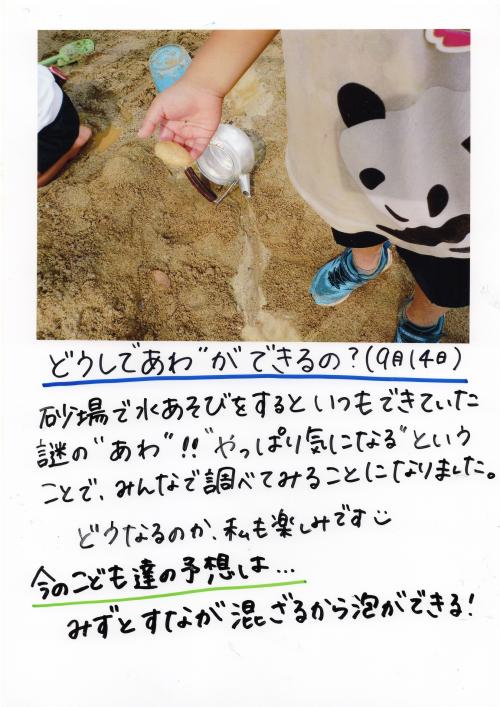 どうして"あわ"ができるの？(9月14日)
砂場で水あそびをするといつもできていた
謎の"あわ"!!"やっぱり気になる"という
ことで、みんなで調べてみることになりました。
どうなるのか、私も楽しみです
今のこども達の予想は…
みずとすなが混ざるから泡ができる!